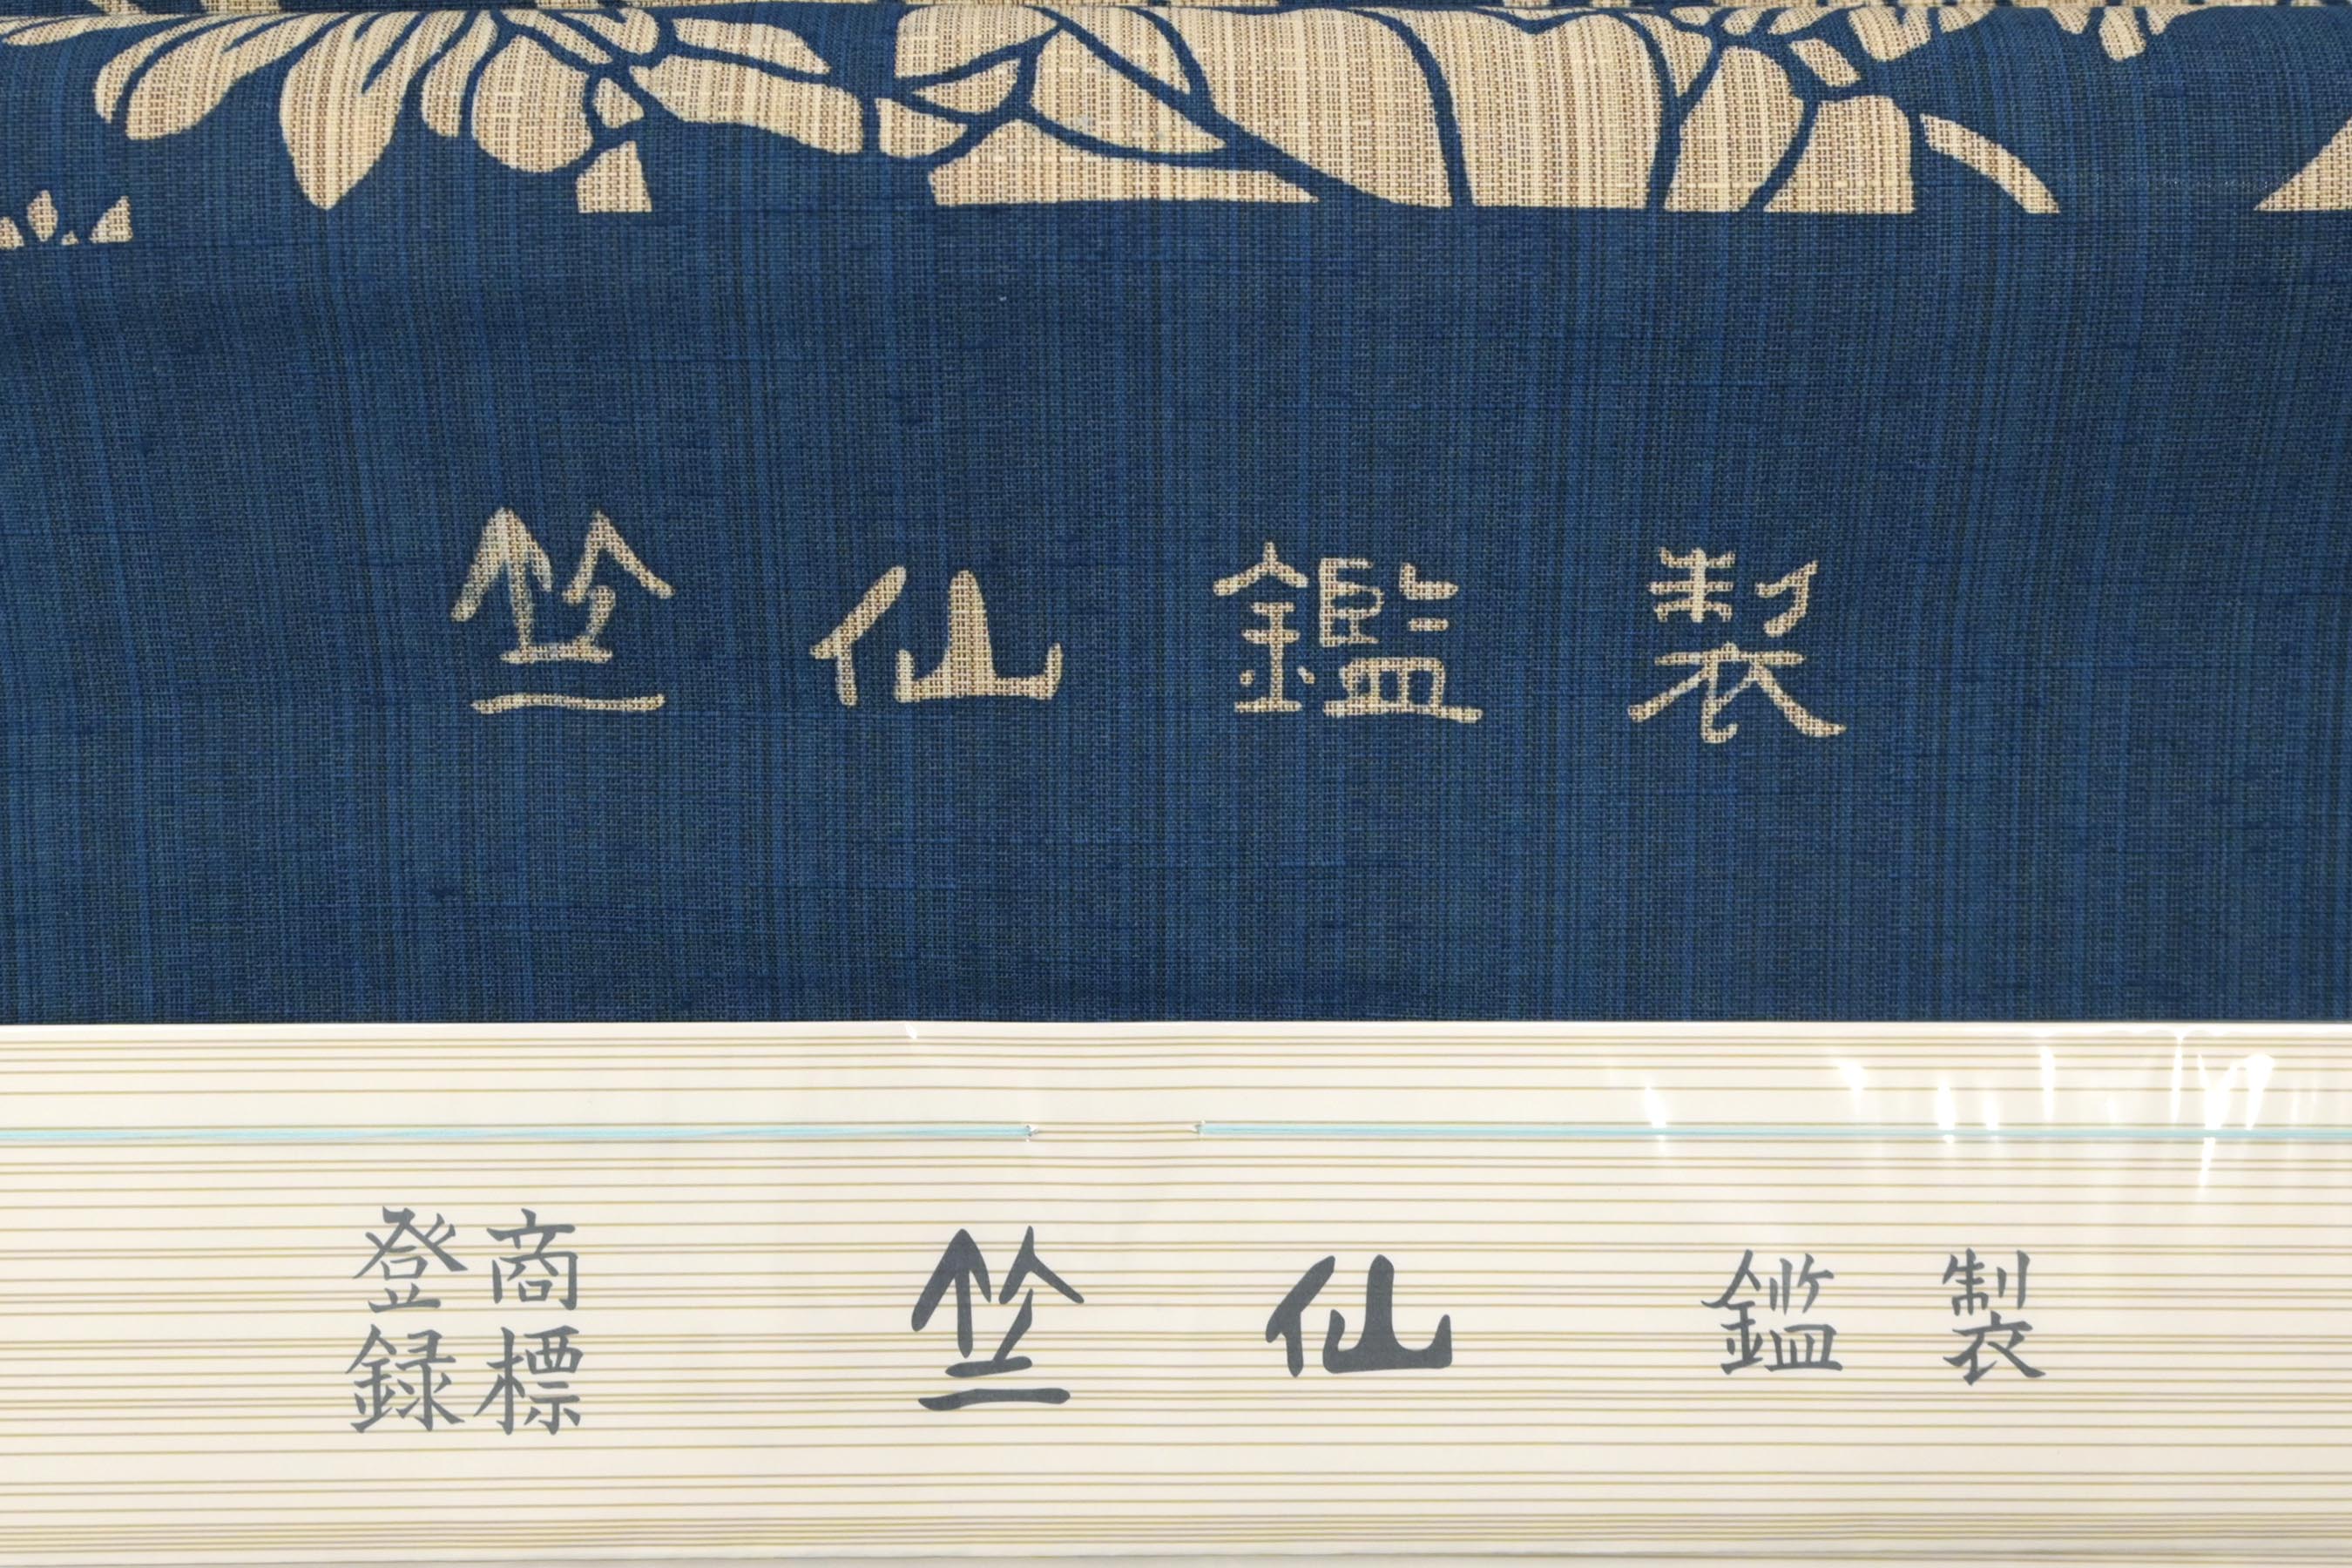 竺仙鑑製
商標
登録
竺仙鑑製